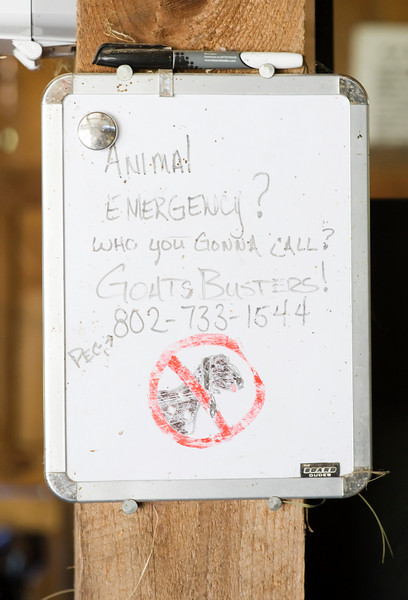 ANIMAL
EMERGENCY?
WHO YOU GONNA CALL?
GOATSBUSTERS!
802-733-1544
BOARD
DUDES